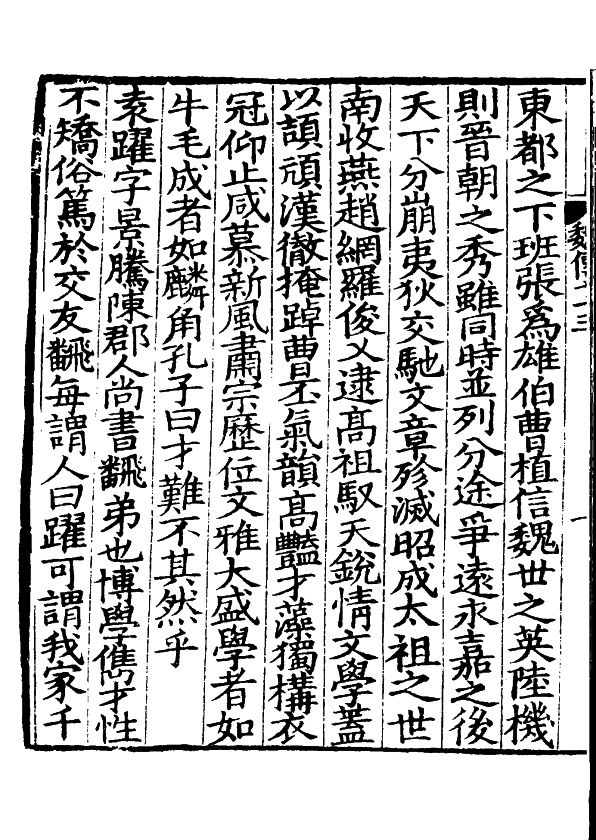 東都之下班張爲雄伯曹植信魏世之英陸機
則晉朝之秀雖同時並列分途爭遠永嘉之後
天下分崩夷狄交馳文章殄滅昭成太祖之世
南收燕趙網羅俊乂逮髙祖馭天銳情文學蓋
以頡頏漢徹掩踔曹丕氣韻髙豔才藻獨構衣
冠仰止咸慕新風肅宗歷位文雅大盛學者如
牛毛成者如麟角孔子曰才難不其然乎
袁躍字景騰陳郡人尚書飜弟也博學儁才性
不矯俗篤於交友飜每謂人曰躍可謂我家千